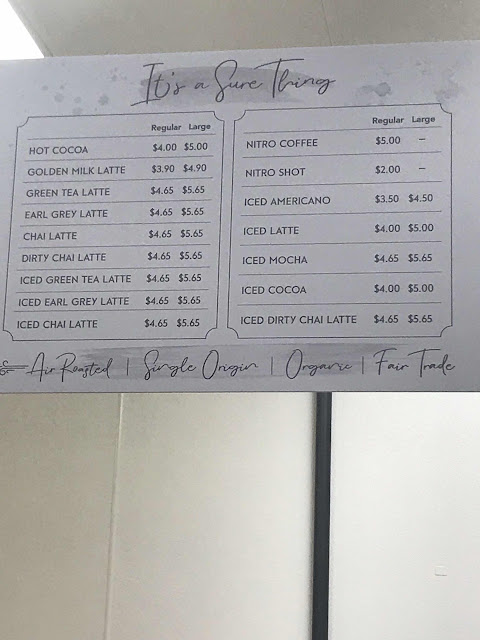 It's a Sure Thing
Regular Large
HOT COCOA $4.00 $5.00
GOLDEN MILK LATTE $3.90 $4.90
GREEN TEA LATTE $4.65 $5.65
EARL GREY LATTE $4.65 $5.65
CHAI LATTE $4.65 $5.65
DIRTY CHAI LATTE $4.65 $5.65
ICED GREEN TEA LATTE $4.65 $5.65
ICED EARL GREY LATTE $4.65 $5.65
ICED CHAI LATTE $4.65 $5.65
Regular Large
NITRO COFFEE $5.00 –
NITRO SHOT $2.00 –
ICED AMERICANO $3.50 $4.50
ICED LATTE $4.00 $5.00
ICED MOCHA $4.65 $5.65
ICED COCOA $4.00 $5.00
ICED DIRTY CHAI LATTE $4.65 $5.65
Air Roasted | Single Origin | Organic | Fair Trade